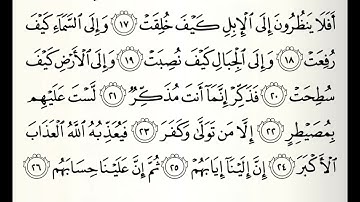 أَفَلَا يَنظُرُونَ إِلَى ٱلْإِبِلِ كَيْفَ خُلِقَتْ ١٧ وَإِلَى ٱلسَّمَآءِ كَيْفَ
رُفِعَتْ ١٨ وَإِلَى ٱلْجِبَالِ كَيْفَ نُصِبَتْ ١٩ وَإِلَى ٱلْأَرْضِ كَيْفَ
سُطِحَتْ ٢٠ فَذَكِّرْ إِنَّمَآ أَنتَ مُذَكِّرٌ ٢١ لَّسْتَ عَلَيْهِم
بِمُصَيْطِرٍ ٢٢ إِلَّا مَن تَوَلَّىٰ وَكَفَرَ ٢٣ فَيُعَذِّبُهُ ٱللَّهُ ٱلْعَذَابَ
ٱلْأَكْبَرَ ٢٤ إِنَّ إِلَيْنَآ إِيَابَهُمْ ٢٥ ثُمَّ إِنَّ عَلَيْنَا حِسَابَهُم ٢٦